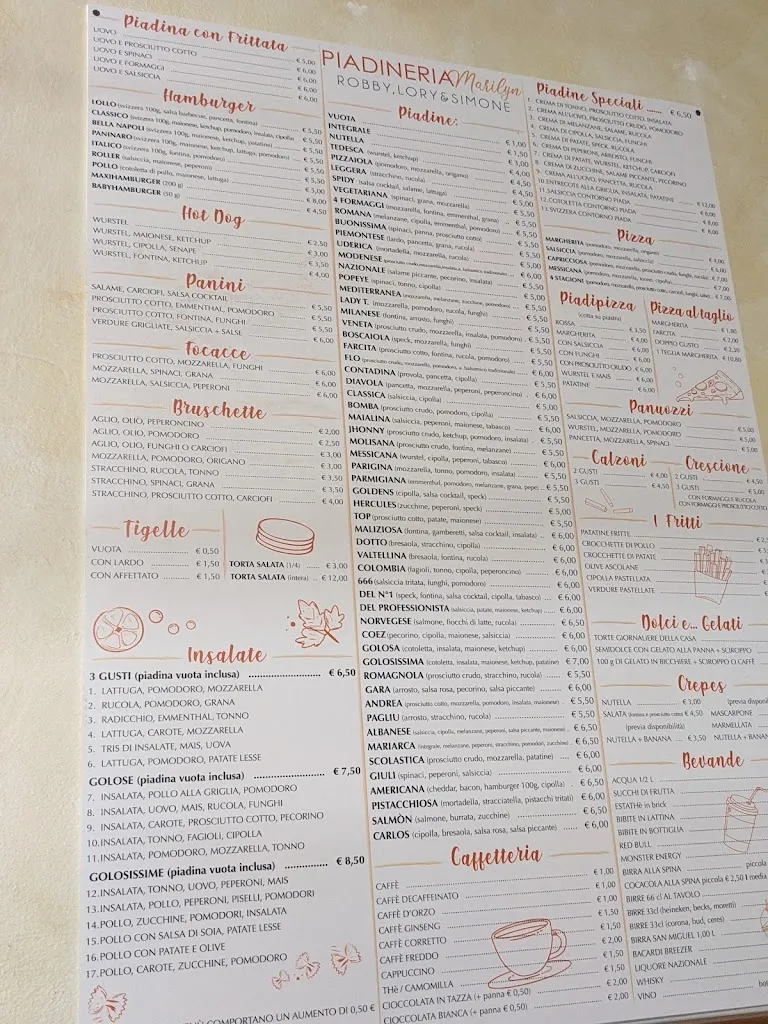 Piadina con Frittata
UOVO € 5,00
UOVO E PROSCIUTTO COTTO € 6,00
UOVO E SPINACI € 6,00
UOVO E FORMAGGI € 6,00
UOVO E SALSICCIA € 6,00
Hamburger
LOLLO (svizzera 100g, salsa barbecue, pancetta, fontina) € 5,50
CLASSICO (svizzera 100g, maionese, ketchup, pomodoro, insalata, cipolla) € 5,50
BELLA NAPOLI (svizzera 100g, maionese, ketchup, mozzarella, patatine) € 5,50
PANINARO (svizzera 100g, maionese, ketchup, lattuga, pomodoro) € 5,50
ITALICO (svizzera 100g, fontina, pomodoro)
ROLLER (salsiccia, maionese, peperoni)
POLLO (cotoletta di pollo, maionese, lattuga) € 5,00
MAXIHAMBURGER (200 g) € 8,00
BABYHAMBURGER (50 g) € 4,50
Hot Dog
WURSTEL € 2,50
WURSTEL, MAIONESE, KETCHUP € 3,00
WURSTEL, CIPOLLA, SENAPE € 3,50
WURSTEL, FONTINA, KETCHUP € 4,00
Panini
SALAME, CARCIOFI, SALSA COCKTAIL € 5,50
PROSCIUTTO COTTO, EMMENTHAL, POMODORO € 5,50
PROSCIUTTO COTTO, FONTINA, FUNGHI € 5,50
VERDURE GRIGLIATE, SALSICCIA + SALSE € 6,00
Focacce
PROSCIUTTO COTTO, MOZZARELLA, FUNGHI € 6,00
MOZZARELLA, SPINACI, GRANA € 6,00
MOZZARELLA, SALSICCIA, PEPERONI € 6,00
Bruschette
AGLIO, OLIO, PEPERONCINO € 2,00
AGLIO, OLIO, POMODORO € 2,50
AGLIO, OLIO, FUNGHI O CARCIOFI € 3,00
MOZZARELLA, POMODORO, ORIGANO € 3,00
STRACCHINO, RUCOLA, TONNO € 3,50
STRACCHINO, SPINACI, GRANA € 3,50
STRACCHINO, PROSCIUTTO COTTO, CARCIOFI € 4,00
Tigelle
VUOTA € 0,50
CON LARDO € 1,50
CON AFFETTATO € 1,50
TORTA SALATA (1/4) € 3,00
TORTA SALATA (intera) € 12,00
Insalate
3 GUSTI (piadina vuota inclusa) € 6,50
1. LATTUGA, POMODORO, MOZZARELLA
2. RUCOLA, POMODORO, GRANA
3. RADICCHIO, EMMENTHAL, TONNO
4. LATTUGA, CAROTE, MOZZARELLA
5. TRIS DI INSALATE, MAIS, UOVA
6. LATTUGA, POMODORO, PATATE LESSE
GOLOSE (piadina vuota inclusa) € 7,50
7. INSALATA, POLLO ALLA GRIGLIA, POMODORO
8. INSALATA, UOVO, MAIS, RUCOLA, FUNGHI
9. INSALATA, CAROTE, PROSCIUTTO COTTO, PECORINO
10. INSALATA, TONNO, FAGIOLI, CIPOLLA
11. INSALATA, POMODORO, MOZZARELLA, TONNO
GOLOSISSIME (piadina vuota inclusa) € 8,50
12. INSALATA, TONNO, UOVO, PEPERONI, MAIS
13. INSALATA, POLLO, PEPERONI, PISELLI, POMODORI
14. POLLO, ZUCCHINE, POMODORI, INSALATA
15. POLLO CON SALSA DI SOIA, PATATE LESSE
16. POLLO CON PATATE E OLIVE
17. POLLO, CAROTE, ZUCCHINE, POMODORO
COMPORTANO UN AUMENTO DI 0,50 €
PIADINERIA Marilyn
ROBBY, LORY & SIMONE
Piadine:
VUOTA € 1,00
INTEGRALE € 1,50
NUTELLA € 3,00
TEDESCA (wurstel, ketchup) € 4,00
PIZZAIOLA (pomodoro, mozzarella, origano) € 4,00
LEGGERA (stracchino, rucola) € 4,50
SPIDY (salsa cocktail, salame, lattuga)
VEGETARIANA (spinaci, grana, mozzarella)
4 FORMAGGI (mozzarella, fontina, emmenthal, grana) € 5,50
ROMANA (melanzane, cipolla, emmenthal, pomodoro) € 5,50
BUONISSIMA (spinaci, panna, prosciutto cotto) € 5,50
PIEMONTESE (lardo, pancetta, grana, rucola) € 5,50
UDERICA (mortadella, mozzarella, rucola)
MODENESE (prosciutto crudo, mozzarella, insalata, a. balsamico tradizionale)
NAZIONALE (salame piccante, pecorino, insalata)
POPEYE (spinaci, tonno, cipolla)
MEDITERRANEA (mozzarella, melanzane, zucchine, pomodoro)
LADY T. (mozzarella, pomodoro, rucola, funghi) € 5,50
MILANESE (fontina, arrosto, funghi) € 5,50
VENETA (prosciutto crudo, mozzarella, insalata, pomodoro) € 5,50
BOSCAIOLA (speck, mozzarella, funghi) € 5,50
FARCITA (prosciutto cotto, fontina, rucola, pomodoro) € 5,50
FLO (prosciutto crudo, mozzarella, pomodoro, a. balsamico tradizionale)
CONTADINA (provola, pancetta, cipolla)
DIAVOLA (pancetta, mozzarella, peperoni, peperoncino) € 6,00
CLASSICA (salsiccia, cipolla) € 5,00
BOMBA (prosciutto crudo, pomodoro, cipolla) € 5,50
MAIALINA (salsiccia, peperoni, maionese, tabasco) € 6,00
JHONNY (prosciutto crudo, ketchup, pomodoro, insalata) € 5,50
MOLISANA (prosciutto crudo, fontina, melanzane) € 5,50
MESSICANA (wurstel, cipolla, peperoni, tabasco) € 6,00
PARIGINA (mozzarella, tonno, pomodoro, insalata) € 5,50
PARMIGIANA (emmenthal, pomodoro, melanzane, grana, pepe) € 5,50
GOLDENS (cipolla, salsa cocktail, speck) € 5,50
HERCULES (zucchine, peperoni, speck) € 5,50
TOP (prosciutto cotto, patate, maionese) € 5,50
MALIZIOSA (fontina, gamberetti, salsa cocktail, insalata) € 6,00
DOTTO (bresaola, stracchino, cipolla) € 6,00
VALTELLINA (bresaola, fontina, rucola) € 6,00
COLOMBIA (fagioli, tonno, cipolla, peperoncino) € 6,00
666 (salsiccia tritata, funghi, pomodoro) € 6,00
DEL N°1 (speck, fontina, salsa cocktail, cipolla, tabasco) € 6,00
DEL PROFESSIONISTA (salsiccia, patate, maionese, ketchup) € 6,00
NORVEGESE (salmone, fiocchi di latte, rucola) € 6,50
COEZ (pecorino, cipolla, maionese, salsiccia) € 6,00
GOLOSA (cotoletta, insalata, maionese, ketchup) € 6,00
GOLOSISSIMA (cotoletta, insalata, maionese, ketchup, patatine) € 7,00
ROMAGNOLA (prosciutto crudo, stracchino, rucola) € 5,50
GARA (arrosto, salsa rosa, pecorino, salsa piccante) € 6,00
ANDREA (prosciutto cotto, mozzarella, pomodoro, insalata, maionese) € 5,50
PAGLIU (arrosto, stracchino, rucola) € 5,50
ALBANESE (salsiccia, cipolla, melanzane, peperoni, salsa piccante, maionese) € 6,50
MARIARCA (integrale, melanzane, peperoni, stracchino, pomodori, zucchine) € 6,50
SCOLASTICA (prosciutto crudo, mozzarella, patatine) € 6,00
GIULI (spinaci, peperoni, salsiccia) € 6,00
AMERICANA (cheddar, bacon, hamburger 100g, cipolla) € 6,50
PISTACCHIOSA (mortadella, stracciatella, pistacchi tritati) € 6,00
SALMÒN (salmone, burrata, zucchine) € 6,50
CARLOS (cipolla, bresaola, salsa rosa, salsa piccante) € 6,00
Caffetteria
CAFFÈ € 1,00
CAFFÈ DECAFFEINATO € 1,00
CAFFÈ D'ORZO € 1,50
CAFFÈ GINSENG € 1,50
CAFFÈ CORRETTO € 2,00
CAFFÈ FREDDO € 1,50
CAPPUCCINO € 1,50
THè / CAMOMILLA € 2,00
CIOCCOLATA IN TAZZA (+ panna € 0,50) € 2,00
CIOCCOLATA BIANCA (+ panna € 0,50)
Piadine Speciali € 6,50
1. CREMA DI TONNO, PROSCIUTTO COTTO, INSALATA
2. CREMA ALL'UOVO, PROSCIUTTO CRUDO, POMODORO
3. CREMA DI MELANZANE, SALAME, RUCOLA
4. CREMA DI CIPOLLA, SALSICCIA, FUNGHI
5. CREMA DI PATATE, SPECK, RUCOLA
6. CREMA DI PEPERONI, ARROSTO, FUNGHI
7. CREMA DI PATATE, WURSTEL, KETCHUP, CARCIOFI
8. CREMA DI ZUCCHINE, SALAME PICCANTE, PECORINO
9. CREMA ALL'UOVO, PANCETTA, RUCOLA
10. ENTRECOTE ALLA GRIGLIA, INSALATA, PATATINE € 12,00
11. SALSICCIA CONTORNO PIADA € 8,00
12. COTOLETTA CONTORNO PIADA € 8,00
13. SVIZZERA CONTORNO PIADA € 8,00
Pizza
MARGHERITA (pomodoro, mozzarella, origano) € 4,00
SALSICCIA (pomodoro, mozzarella, salsiccia) € 6,00
CAPRICCIOSA (pomodoro, mozzarella, prosciutto crudo, funghi, rucola) € 7,00
MESSICANA (pomodoro, fagioli, tonno, cipolla) € 7,00
4 STAGIONI (pomodoro, mozzarella, prosciutto cotto, carciofi, funghi, salsa) € 7,00
Piadipizza
(cotta su piastra)
ROSSA € 3,50
MARGHERITA € 4,00
CON SALSICCIA € 6,00
CON FUNGHI € 6,00
CON PROSCIUTTO CRUDO € 6,00
WURSTEL E MAIS € 6,00
PATATINE € 6,00
Pizza al taglio
MARGHERITA € 1,80
FARCITA € 2,00
DOPPIO GUSTO € 2,50
1 TEGLIA MARGHERITA € 10,80
Panuozzi
SALSICCIA, MOZZARELLA, POMODORO € 5,00
WURSTEL, MOZZARELLA, POMODORO € 5,00
PANCETTA, MOZZARELLA, SPINACI € 5,00
Calzoni
2 GUSTI € 4,00
3 GUSTI € 4,50
Crescione
2 GUSTI € 4,50
3 GUSTI € 5,00
CON FORMAGGI E RUCOLA
CON FORMAGGI E PROSCIUTTO COTTO
I Fritti
PATATINE FRITTE
CROCCHETTE DI POLLO
CROCCHETTE DI PATATE
OLIVE ASCOLANE
CIPOLLA PASTELLATA
VERDURE PASTELLATE
Dolci e... Gelati
TORTE GIORNALIERE DELLA CASA
SEMIDOLCE CON GELATO ALLA PANNA + SCIROPPO
100 g DI GELATO IN BICCHIERE + SCIROPPO O CAFFÈ
Crepes
NUTELLA € 3,00
SALATA (fontina e prosciutto cotto) € 4,50
(previa disponibilità)
NUTELLA + BANANA € 3,50
(previa disponi
MASCARPONE
MARMELLATA
NUTELLA + BANAN
Bevande
ACQUA 1/2 L
SUCCHI DI FRUTTA
ESTATHè in brick
BIBITE IN LATTINA
BIBITE IN BOTTIGLIA
RED BULL
MONSTER ENERGY
BIRRA ALLA SPINA piccola
COCACOLA ALLA SPINA piccola € 2,50 | media
BIRRE 66 cl AL TAVOLO
BIRRE 33cl (heineken, becks, moretti)
BIRRE 33cl (corona, bud, ceres)
BIRRA SAN MIGUEL 1,00 L
BACARDI BREEZER
LIQUORE NAZIONALE
WHISKY
VINO bot